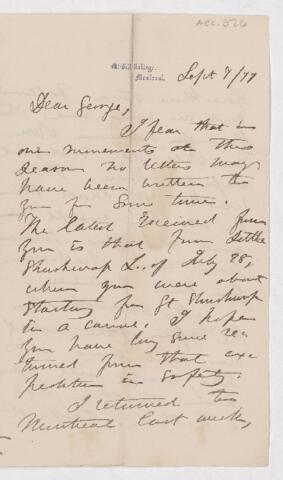 ACC. 526
McGill College,
Montreal.
Sept 7/77
Dear George,
I fear that in
our movements at this
season no letters may
have been written to
you for some time.
The latest received from
you is that from Little
Shushwap L., of July 28,
when you were about
starting for Gt Shushwap
in a canoe. I hope
you have long since re
turned from that exe
pedition in safety.
I returned to
Montreal last week,